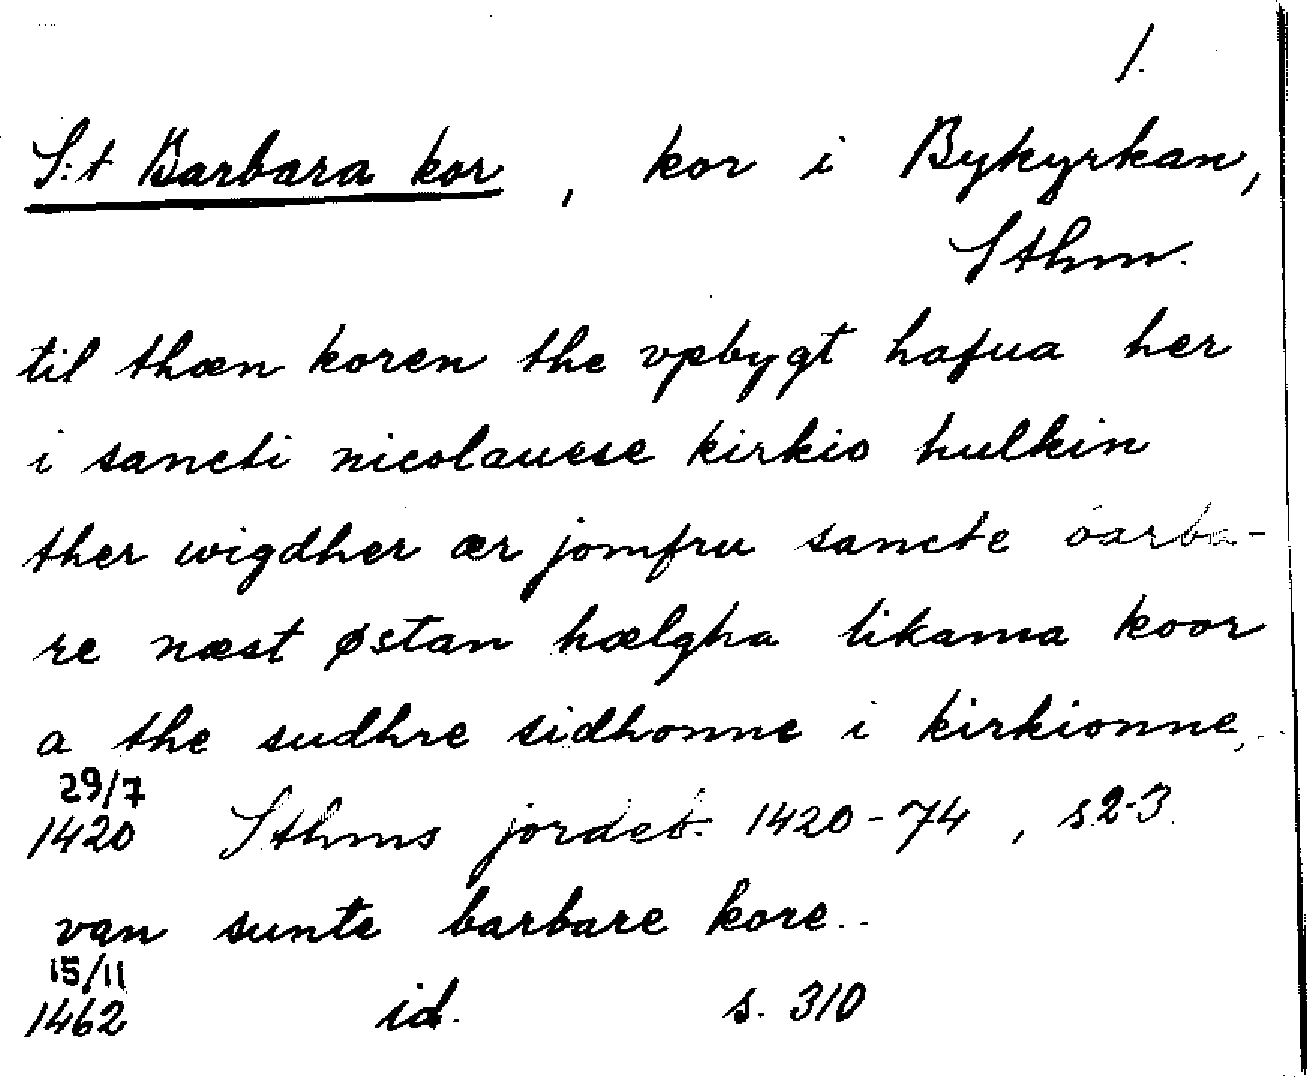 1.
S:t Barbara kor, kor i Bykyrkan,
Sthm.
til thæn koren the vpbygt hafua her
i sancti nicolauese kirkio hulkin
ther wigdher ær jomfru sancte barba-
re næst østan hælgha likama koor
a the sudhre sidhonne i kirkionne.
29/7
1420 Sthms jordeb. 1420-74, s 2-3.
van sunte barbare kore..
15/11
1462 id. s. 310